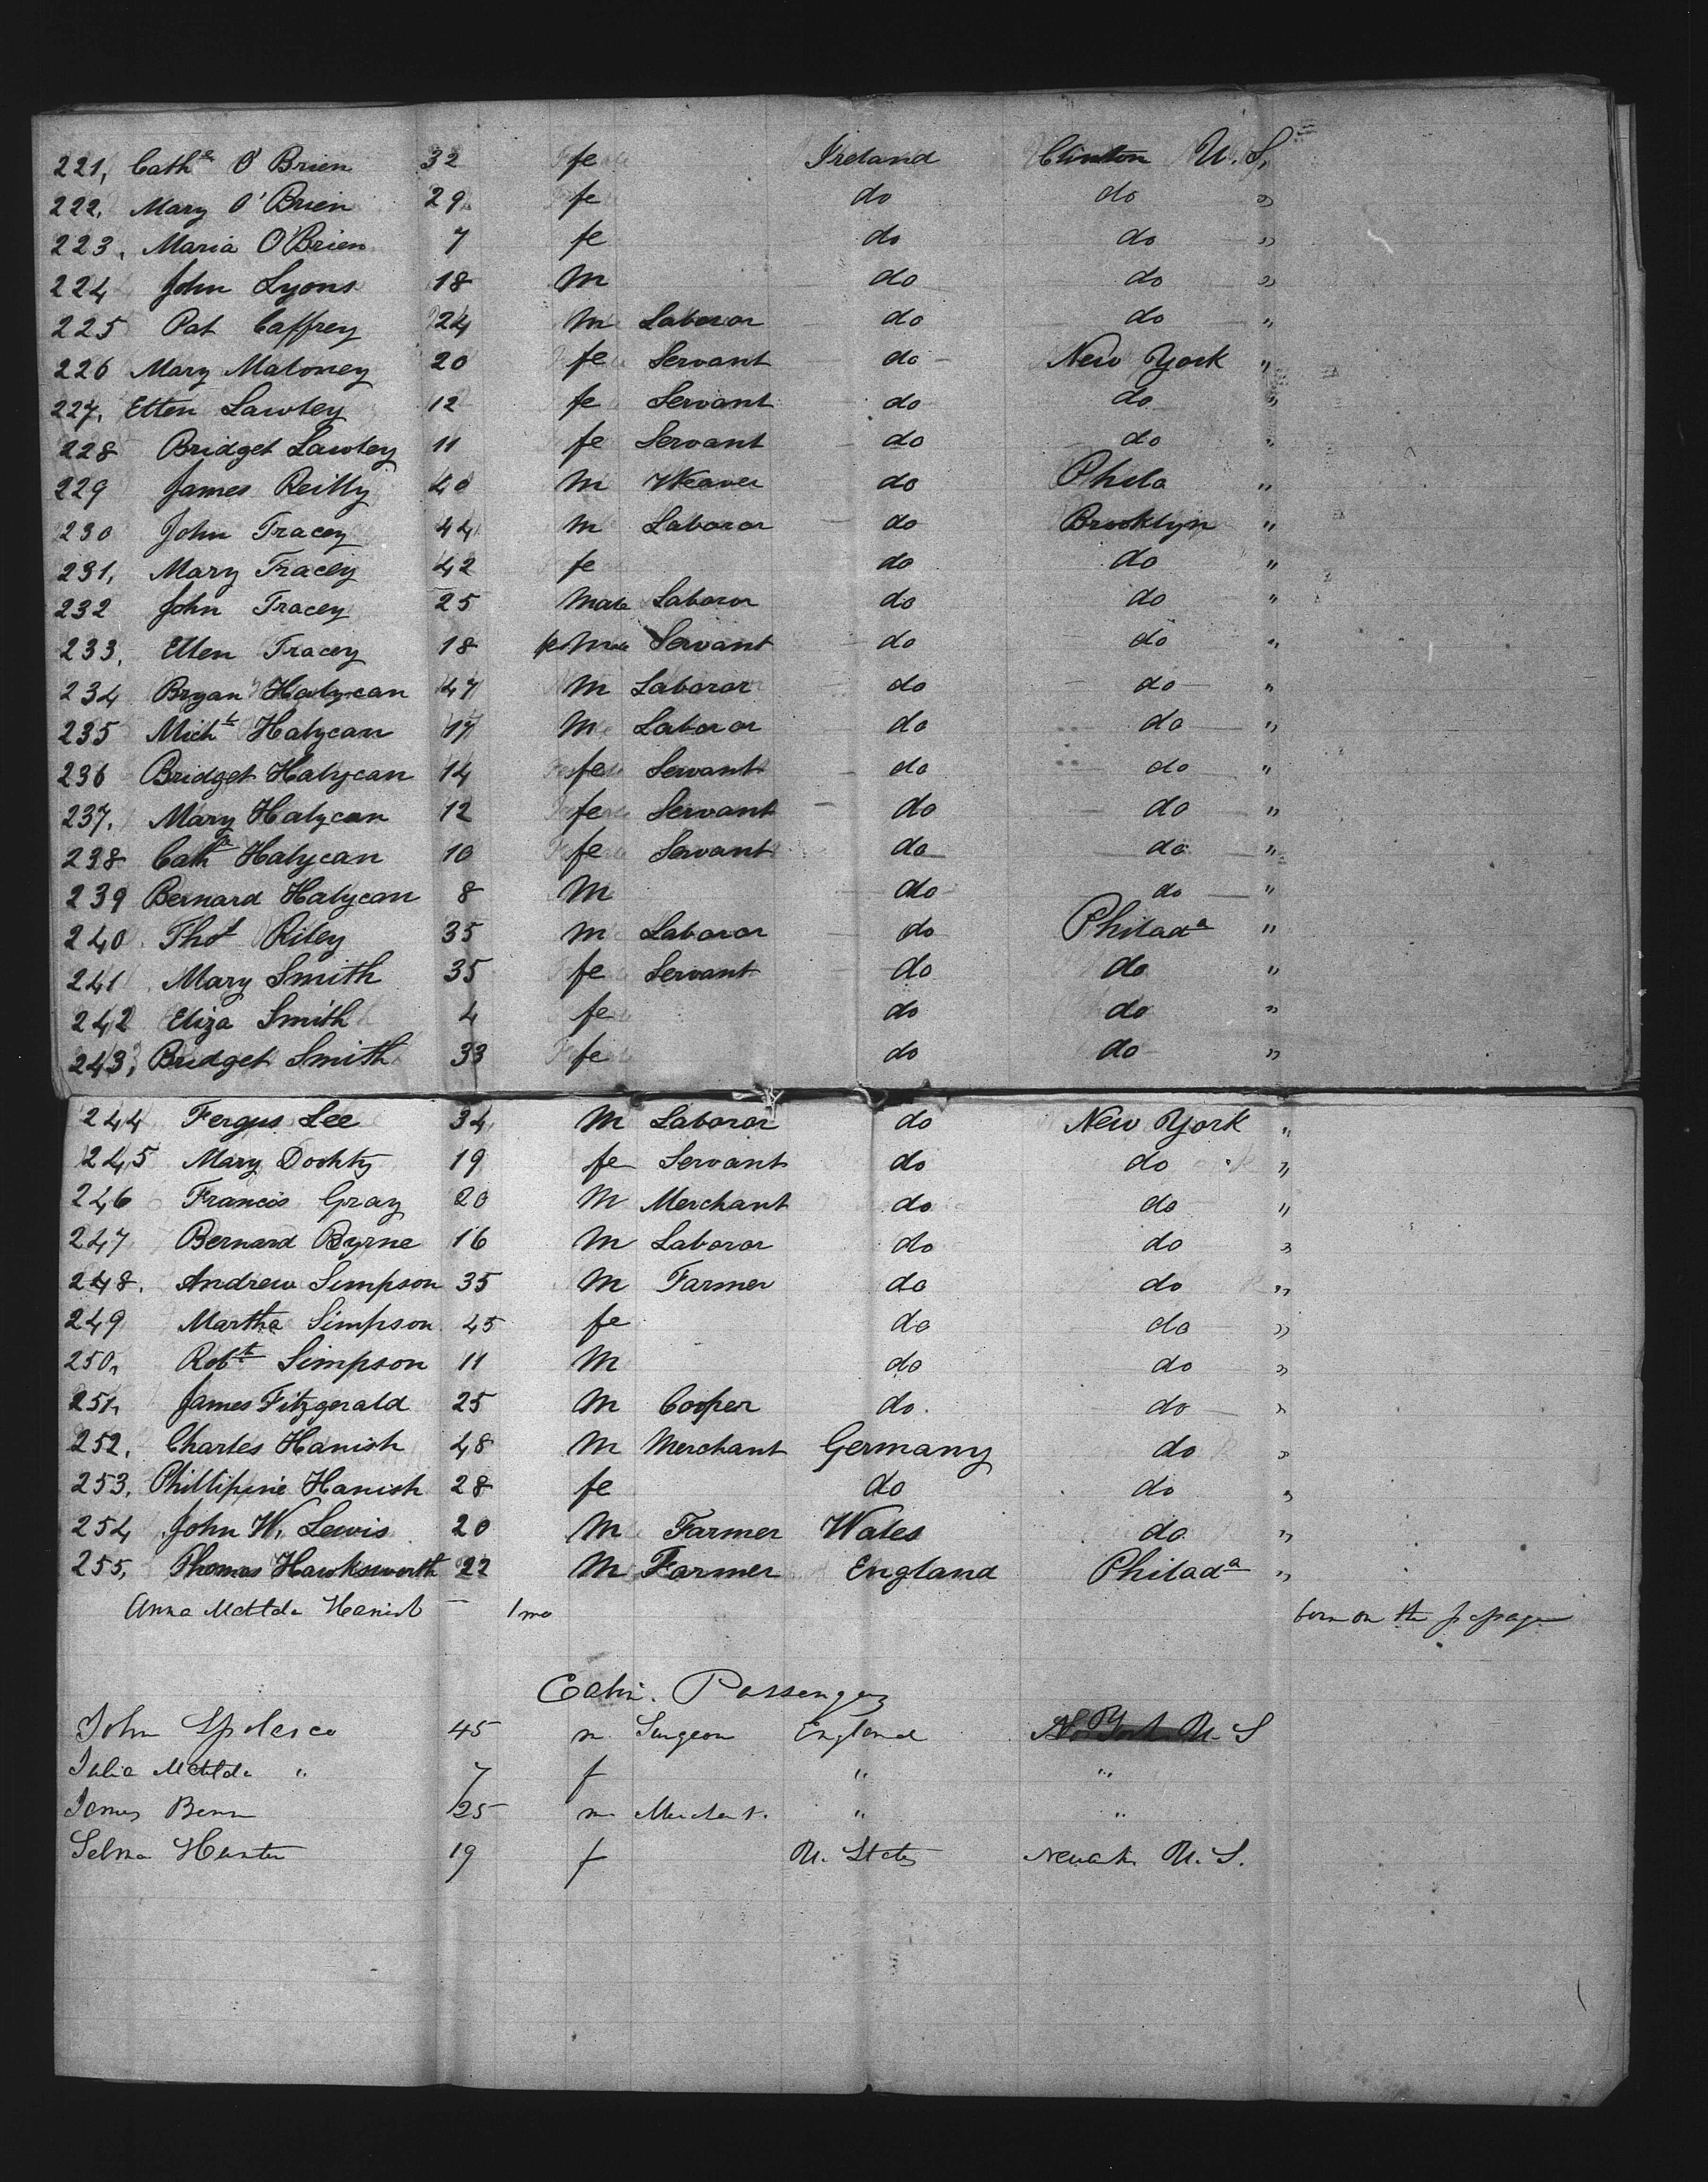 221, Cathe O'Brien 32 fe Ireland Clinton U. S,
222, Mary O'Brien 29 fe do do "
223, Maria O'Brien 7 fe do do "
224 John Lyons 18 M do do "
225 Pat Caffrey 24 M Laboror do do "
226 Mary Maloney 20 fe Servant do New York "
227, Ellen Lawley 12 fe Servant do do "
228 Bridget Lawley 11 fe Servant do do "
229 James Reilly 40 M Weaver do Phila "
230 John Tracey 44 M Laboror do Brooklyn "
231, Mary Tracey 42 fe do do "
232 John Tracey 25 Male Laboror do do "
233, Ellen Tracey 18 feMale Servant do do "
234 Bryan Halycan 47 M Laboror do do "
235 Michl Halycan 17 M Laboror do do "
236 Bridget Halycan 14 fe Servant do do "
237, Mary Halycan 12 fe Servant do do "
238 Cath Halycan 10 fe Servant do do "
239 Bernard Halycan 8 M do do "
240 Thos Riley 35 M Laboror do Philada "
241 Mary Smith 35 fe Servant do do "
242 Eliza Smith 4 fe do do "
243, Bridget Smith 33 fe do do "
244 Fergus Lee 34 M Laboror do New York "
245 Mary Dochty 19 fe Servant do do "
246 Francis Gray 20 M Merchant do do "
247 Bernard Byrne 16 M Laboror do do "
248. Andrew Simpson 35 M Farmer do do "
249 Martha Simpson 45 fe do do "
250, Robt Simpson 11 M do do "
251, James Fitzgerald 25 M Cooper do. do "
252, Charles Hanish 48 M Merchant Germany do "
253, Phillipine Hanish 28 fe do do "
254 John W, Lewis 20 M Farmer Wales do "
255, Thomas Hawksworth 22 M Farmer England Philada "
Anna Matilda Hanish — 1 mo born on the passage
Cabin Passengers
John Spolasco 45 m Surgeon England N. York U. S
Julia Matilda " 7 f " "
James Benn 25 m Merchant. " "
Selma Hunter 19 f U. States Newark U. S.